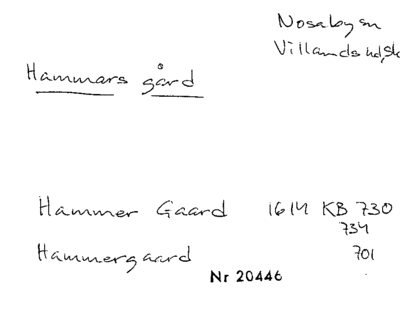 Nosaby sn
Villands hd, Sk
Hammars gård
Hammer Gaard 1614 KB 730
734
Hammergaard 701
Nr 20446